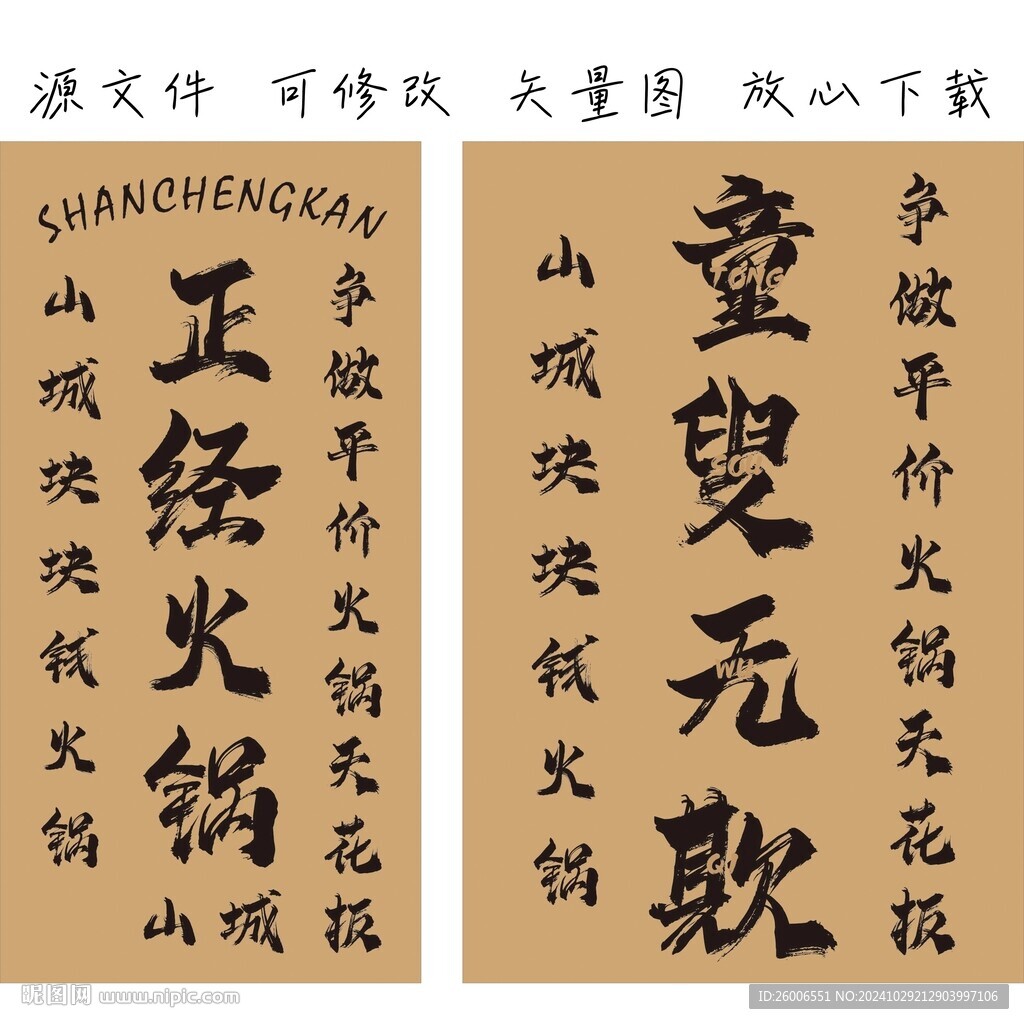 源文件 可修改 矢量图 放心下载
SHANCHENGKAN
争做平价火锅天花板
正经火锅
山城
山城块块钱火锅
争做平价火锅天花板
童叟无欺
TONG
SOU
WU
QI
山城块块钱火锅
昵图网 www.nipic.com
ID:26006551 NO:20241029212903997106